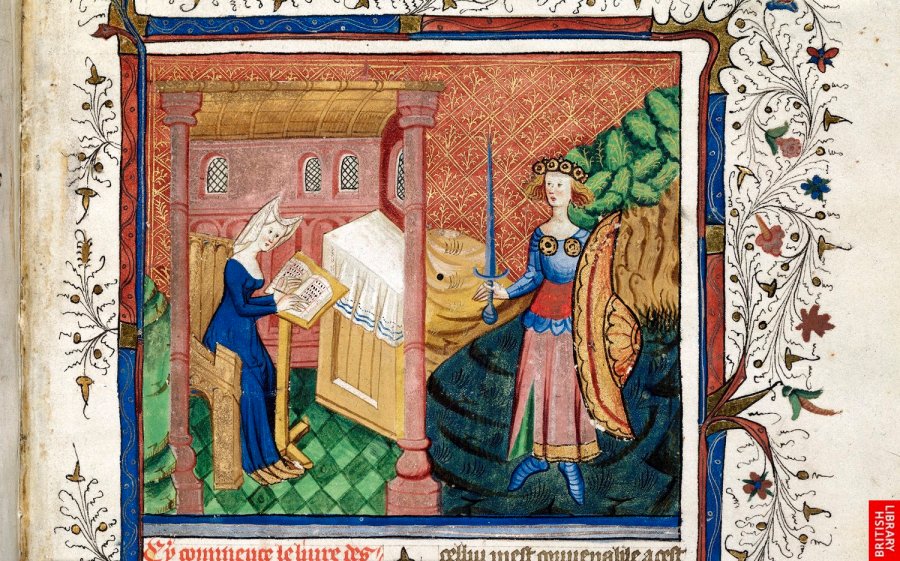 Cy commence le liure des
cellui mest conuenable a cest
BRITISH
LIBRARY